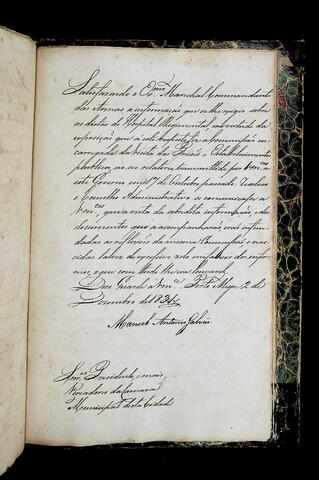 Satisfazendo o Exmo Marechal Commandante
das Armas a informação que se lhe exigio sobre
as dietas do Hospital Regimental, em virtude da
exposição que a este respeito fez a Commissão en-
carregada da visita das Prisões e Estabelecimentos
publicos no seu relatorio transmittido por Vmces a
este Governo em 17 de Outubro passado;
o Conselho Administrativo communicar a
Vmces, que a vista da sobredita informação e dos
documentos que a acompanharão erão infun-
dadas as reflexões da mesma Commissão, e nas-
cidas talvez de excessivo zelo em favor dos enfer-
mos, o que com tudo lhe em louvavel.
Deos Guarde a Vmces Porto Alegre 2 de
Dezembro de 1831
Manoel Antonio Galvão
Snres Presidente, e mais
Vereadores da Camara
Municipal desta Cidade